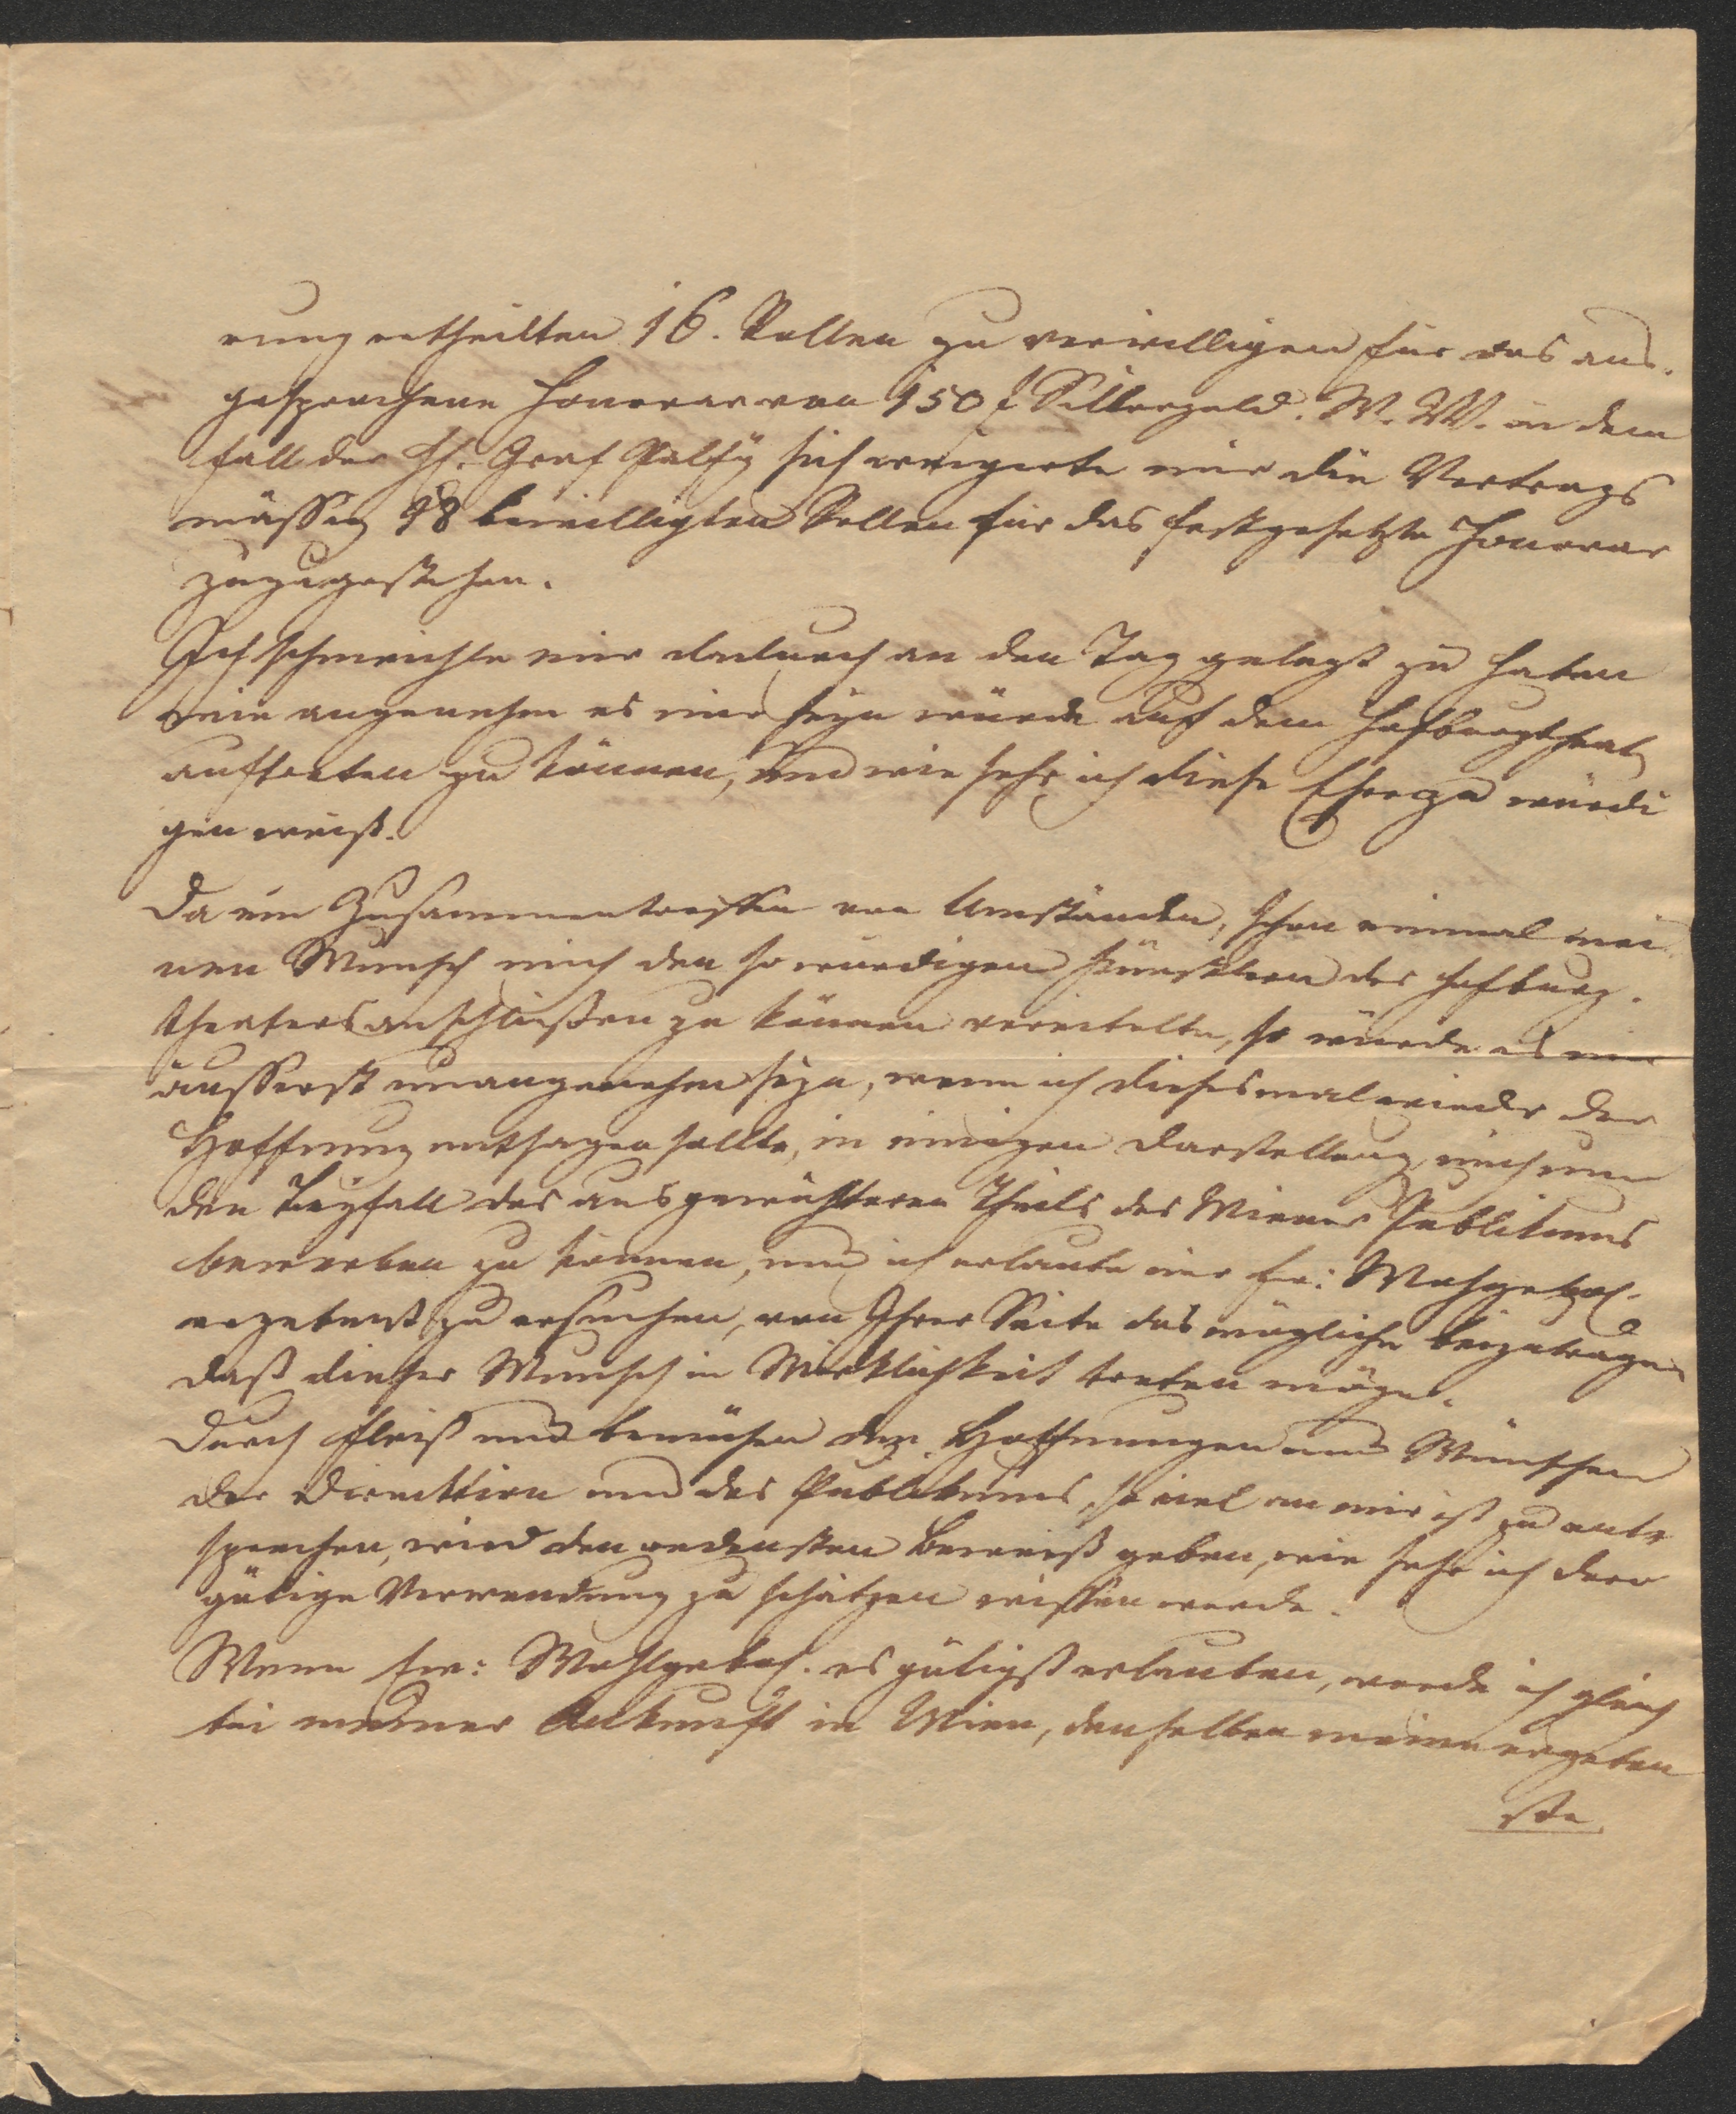 rung ertheilten 16. Rollen zu verwilligen für das aus-
gesprochene Honorar von 150 f Silbergeld. W. W. in dem
Fall der H. Graf Palfy sich weigerte mir die Vertrags
mässig 18 bewilligten Rollen für das festgesetzte Honorar
zuzugestehen.
Ich schmeichle mir dadurch an den Tag gelegt zu haben
wie angenehm es mir seyn würde auf dem Hofburgtheat
auftreten zu können, und wie sehr ich diese Ehre zu würdi
gen weiß.
Da ein Zusammentreffen von Umständen, schon einmal mei-
nen Wunsch mich den so würdigen Künstlern des Hofburg-
theaters anschließen zu können vereitelte, so würde es mir
äusserst unangenehm seyn, wenn ich diesesmal wieder der
Hoffnung entsagen sollte, in einigen Darstellung mich um
den Beyfall des ausgewählteren Theils des Wiener Publikums
bewerben zu können, und ich erlaube mir Ew: Wohlgeboh.
ergebenst zu ersuchen, von Ihrer Seite das mögliche beizutragen
daß dieser Wunsch in Wirklichkeit treten möge.
Durch Fleiß und bemühen den Hoffnungen und Wünschen
der Direcktion und des Publikums, so viel an mir ist zu ent-
sprechen, wird den Beweiß geben, wie sehr ich dero
gütige Verwendung zu schätzen wissen werde.
Wenn Ew: Wohlgeboh. es gütigst erlauben, werde ich gleich
bei meiner Ankunft in Wien, denselben meine ergeben
ste